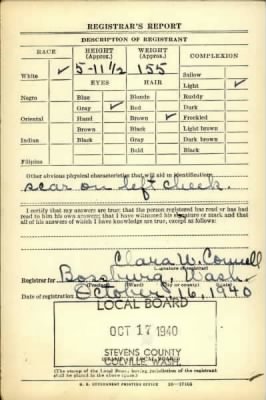 REGISTRAR'S REPORT
DESCRIPTION OF REGISTRANT
RACE HEIGHT (Approx.) WEIGHT (Approx.) COMPLEXION
White ✓ 5-11 1/2 155 Sallow
EYES HAIR Light ✓
Negro Blue Blonde Ruddy
Gray ✓ Red Dark
Oriental Hazel Brown ✓ Freckled
Brown Black Light brown
Indian Black Gray Dark brown
Bald Black
Filipino
Other obvious physical characteristics that will aid in identification
scar on left cheek.
I certify that my answers are true; that the person registered has read or has had
read to him his own answers; that I have witnessed his signature or mark and that
all of his answers of which I have knowledge are true, except as follows:
Clara W. Connell
(Signature of registrar)
Registrar for Bossburg, Wash.
(Precinct) (Ward) (City or county) (State)
Date of registration October 16, 1940
LOCAL BOARD
OCT 17 1940
STEVENS COUNTY
(STAMP OF LOCAL BOARD)
COLVILLE, WASH.
(The stamp of the Local Board having jurisdiction of the registrant
shall be placed in the above space.)
U. S. GOVERNMENT PRINTING OFFICE 16-17105